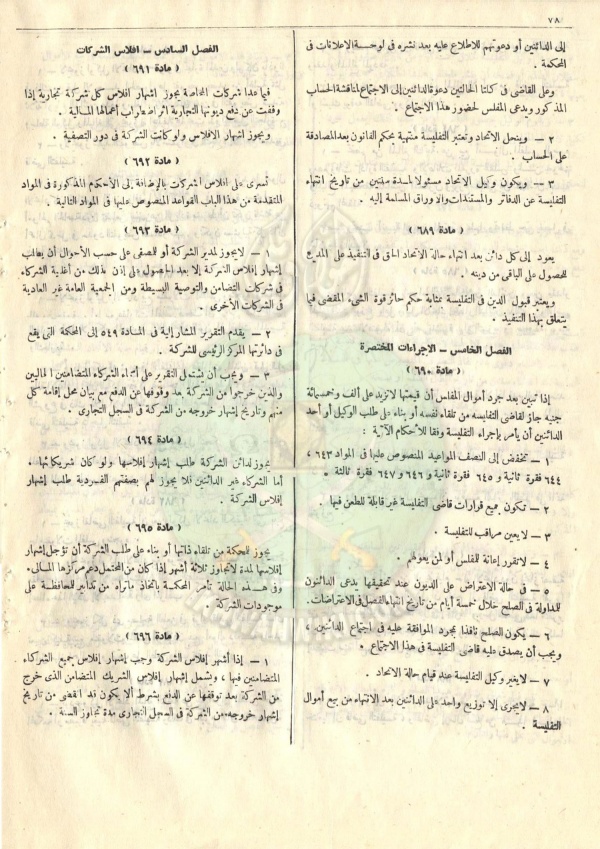 ٧٨
إلى الدائنين أو دعوتهم للاطلاع عليه بعد نشره فى لوحة الاعلانات فى
المحكمة .
وعلى القاضى فى كلتا الحالتين دعوة الدائنين إلى الاجتماع لمناقشة الحساب
المذكور ويدعى المفلس لحضور هذا الاجتماع .
٢ — وينحل الاتحاد وتعتبر التفليسة منتهية بحكم القانون بعد المصادقة
على الحساب .
٣ — ويكون وكيل الاتحاد مسئولا لمدة سنتين من تاريخ انتهاء
التفليسة عن الدفاتر والمستندات والاوراق المسلمة إليه .
( مادة ٦٨٩ )
يعود إلى كل دائن بعد انتهاء حالة الاتحاد الحق فى التنفيذ على المدين
للحصول على الباقى من دينه .
ويعتبر قبول الدين فى التفليسة بمثابة حكم حائز قوة الشىء المقضى فيما
يتعلق بهذا التنفيذ .
الفصل الخامس — الاجراءات المختصرة
( مادة ٦٩٠ )
إذا تبين بعد جرد أموال المفلس أن قيمتها لا تزيد على ألف وخمسمائة
جنيه جاز لقاضى التفليسة من تلقاء نفسه أو بناء على طلب الوكيل أو أحد
الدائنين أن يأمر بإجراء التفليسة وفقا للأحكام الآتية :
١ — تخفض إلى النصف المواعيد المنصوص عليها فى المواد ٦٤٣ ،
٦٤٤ فقرة ثانية و ٦٤٥ فقرة ثانية و ٦٤٦ و ٦٤٧ فقرة ثالثة .
٢ — تكون جميع قرارات قاضى التفليسة غير قابلة للطعن فيها .
٣ — لا يعين مراقب للتفليسة .
٤ — لا تقرر إعانة للمفلس أو لمن يعولهم .
٥ — فى حالة الاعتراض على الديون عند تحقيقها يدعى الدائنون
للمداولة فى الصلح خلال خمسة أيام من تاريخ انتهاء الفصل فى الاعتراضات .
٦ — يكون الصلح نافذا بمجرد الموافقة عليه فى اجتماع الدائنين ،
ويجب أن يصدق عليه قاضى التفليسة فى هذا الاجتماع .
٧ — لا يغير وكيل التفليسة عند قيام حالة الاتحاد .
٨ — لا يجرى إلا توزيع واحد على الدائنين بعد الانتهاء من بيع أموال
التفليسة .
الفصل السادس — افلاس الشركات
( مادة ٦٩١ )
فيما عدا شركات المحاصة يجوز اشهار افلاس كل شركة تجارية إذا
وقفت عن دفع ديونها التجارية اثر اضطراب أعمالها المالية .
ويجوز اشهار الافلاس ولو كانت الشركة فى دور التصفية .
( مادة ٦٩٢ )
تسرى على افلاس الشركات بالإضافة إلى الأحكام المذكورة فى المواد
المتقدمة من هذا الباب القواعد المنصوص عليها فى المواد التالية .
( مادة ٦٩٣ )
١ — لا يجوز لمدير الشركة أو للمصفى على حسب الأحوال أن يطلب
إشهار إفلاس الشركة إلا بعد الحصول على إذن بذلك من أغلبية الشركاء
فى شركات التضامن والتوصية البسيطة ومن الجمعية العامة غير العادية
فى الشركات الأخرى .
٢ — يقدم التقرير المشار إلية فى المادة ٥٤٩ إلى المحكمة التى يقع
فى دائرتها المركز الرئيسى للشركة .
٣ — ويجب أن يشتمل التقرير على أسماء الشركاء المتضامنين الحاليين
والذين خرجوا من الشركة بعد وقوفها عن الدفع مع بيان محل إقامة كل
منهم وتاريخ إشهار خروجه من الشركة فى السجل التجارى .
( مادة ٦٩٤ )
يجوز لدائن الشركة طلب إشهار إفلاسها ولو كان شريكا بها .
أما الشركاء غير الدائنين فلا يجوز لهم بصفتهم الفردية طلب إشهار
إفلاس الشركة .
( مادة ٦٩٥ )
يجوز للمحكمة من تلقاء ذاتها أو بناء على طلب الشركة أن تؤجل إشهار
إفلاسها لمدة لا تجاوز ثلاثة أشهر إذا كان من المحتمل دعم مركزها المالى .
وفى هذه الحالة تأمر المحكمة باتخاذ ما تراه من تدابير للمحافظة على
موجودات الشركة .
( مادة ٦٩٦ )
١ — إذا أشهر إفلاس الشركة وجب إشهار إفلاس جميع الشركاء
المتضامنين فيها ، ويشمل إشهار إفلاس الشريك المتضامن الذى خرج
من الشركة بعد توقفها عن الدفع بشرط ألا يكون قد انقضى من تاريخ
إشهار خروجه من الشركة فى السجل التجارى مدة تجاوز السنة .